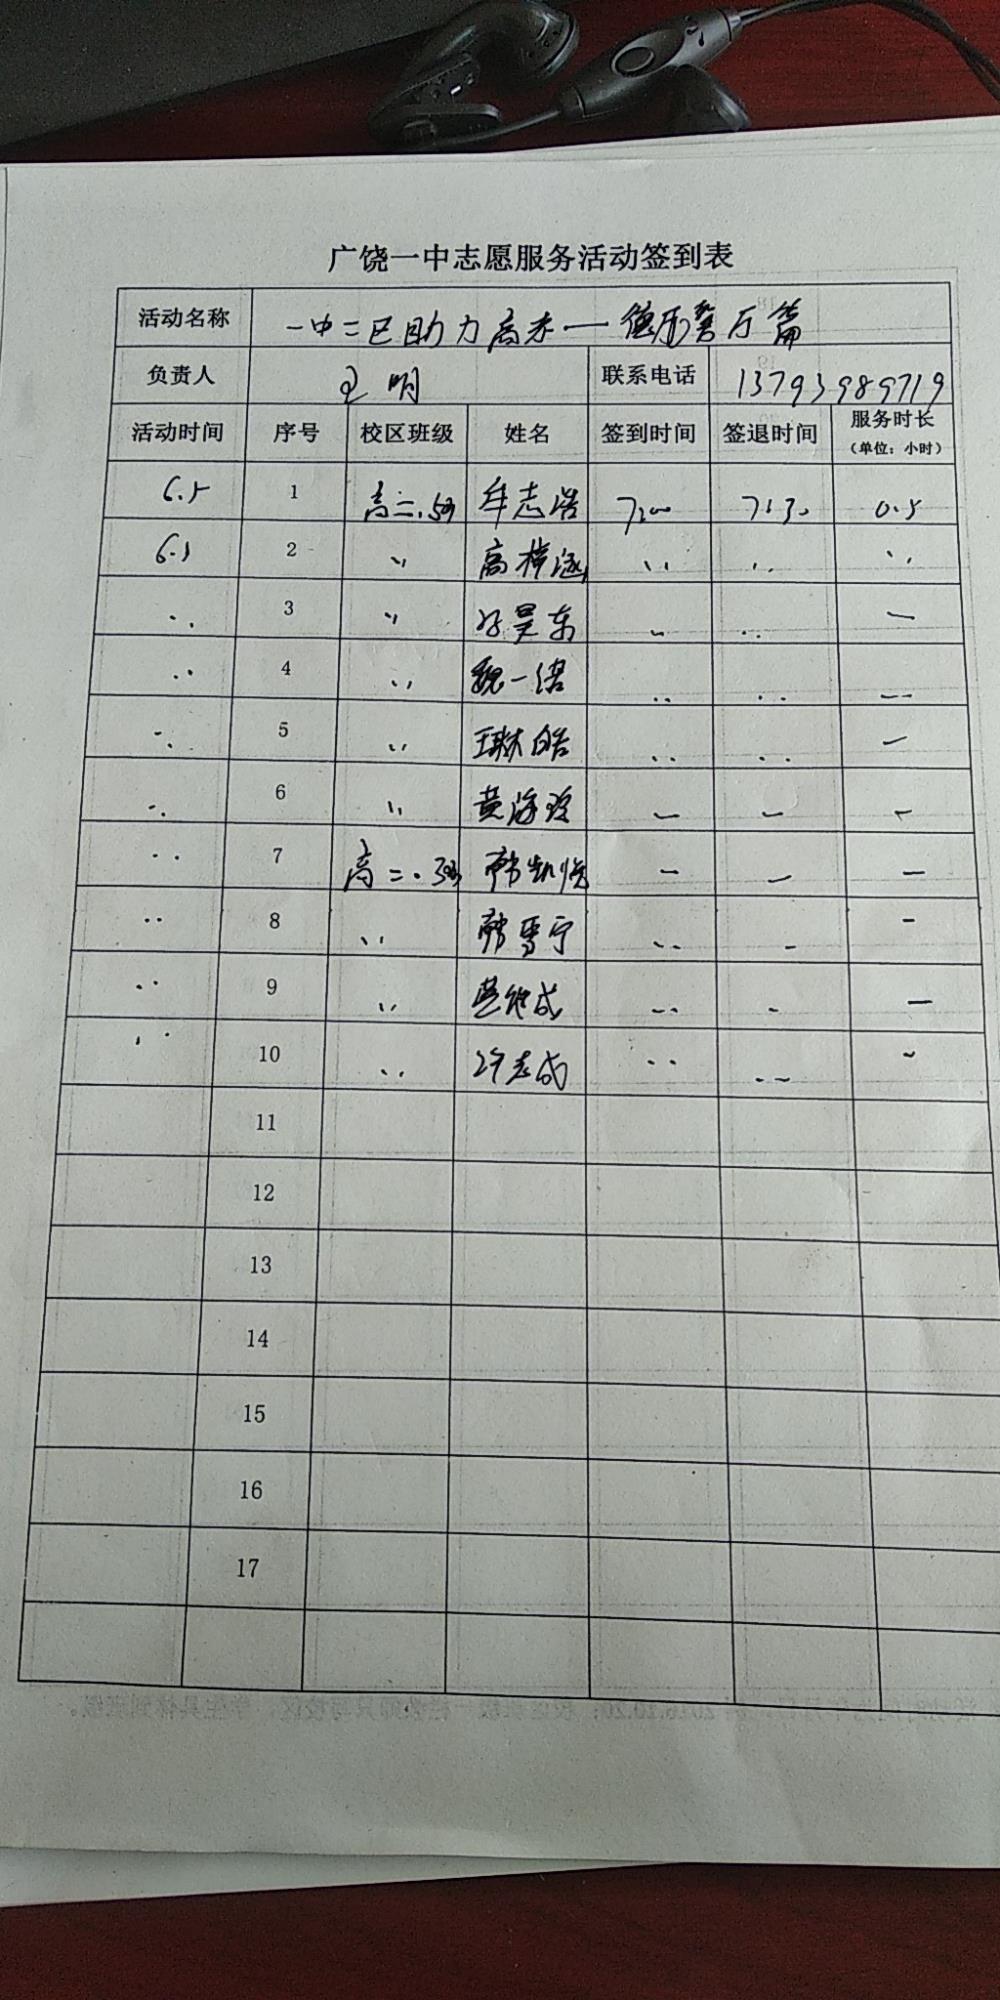 广饶一中志愿服务活动签到表
活动名称 一中二区助力高考一 餐厅篇
负责人 王明 联系电话 13793989719
活动时间 序号 校区班级 姓名 签到时间 签退时间 服务时长（单位：小时）
6.5 1 高二. 牟志浩 7:00 7:30 0.5
6.5 2 〃 高梓涵 〃 〃 〃
〃 3 〃 昊东 〃 〃 一
〃 4 〃 魏一诺 〃 〃 〃
〃 5 〃 王琳皓 〃 〃 一
〃 6 〃 黄海玲 一 一 一
〃 7 高二. 韩凯悦 一 一 一
〃 8 〃 韩雪宁 〃 一 一
〃 9 〃 成 〃 一 一
〃 10 〃 许志成 〃 〃 一
11
12
13
14
15
16
17